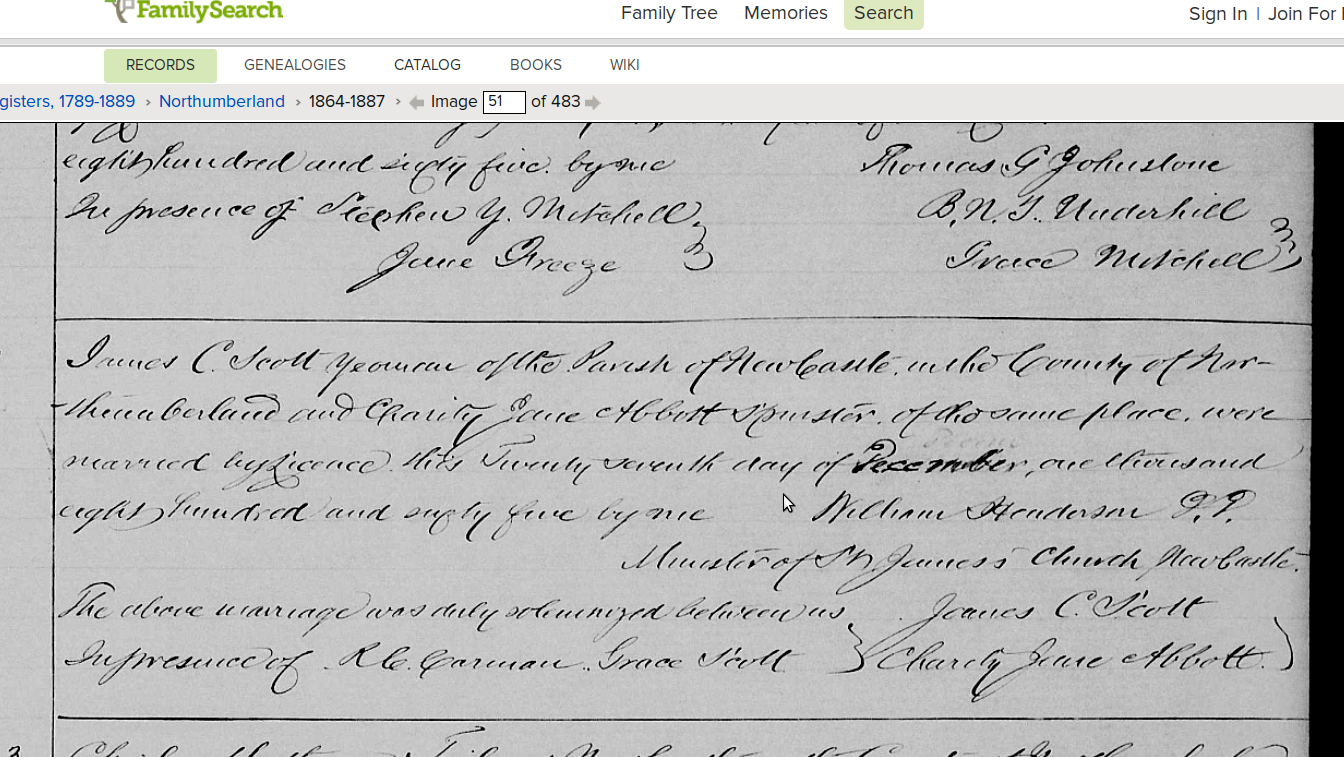 FamilySearch
Family Tree Memories Search Sign In | Join For
RECORDS GENEALOGIES CATALOG BOOKS WIKI
gisters, 1789-1889 › Northumberland › 1864-1887 › Image 51 of 483
eight hundred and sixty five. by me Thomas G Johnstone
In presence of Stephen Y. Mitchell B. N. T. Underhill
Jane Greeze Grace Mitchell
James C. Scott yeoman of the Parish of NewCastle, in the County of Nor-
thumberland and Charity Jane Abbott Spinster, of the same place, were
married by Licence this Twenty seventh day of December, one thousand
eight hundred and sixty five by me William Henderson
Minister of St James's Church NewCastle.
The above marriage was duly solemnized between us, James C. Scott
In presence of R C. Carman. Grace Scott Charity Jane Abbott.